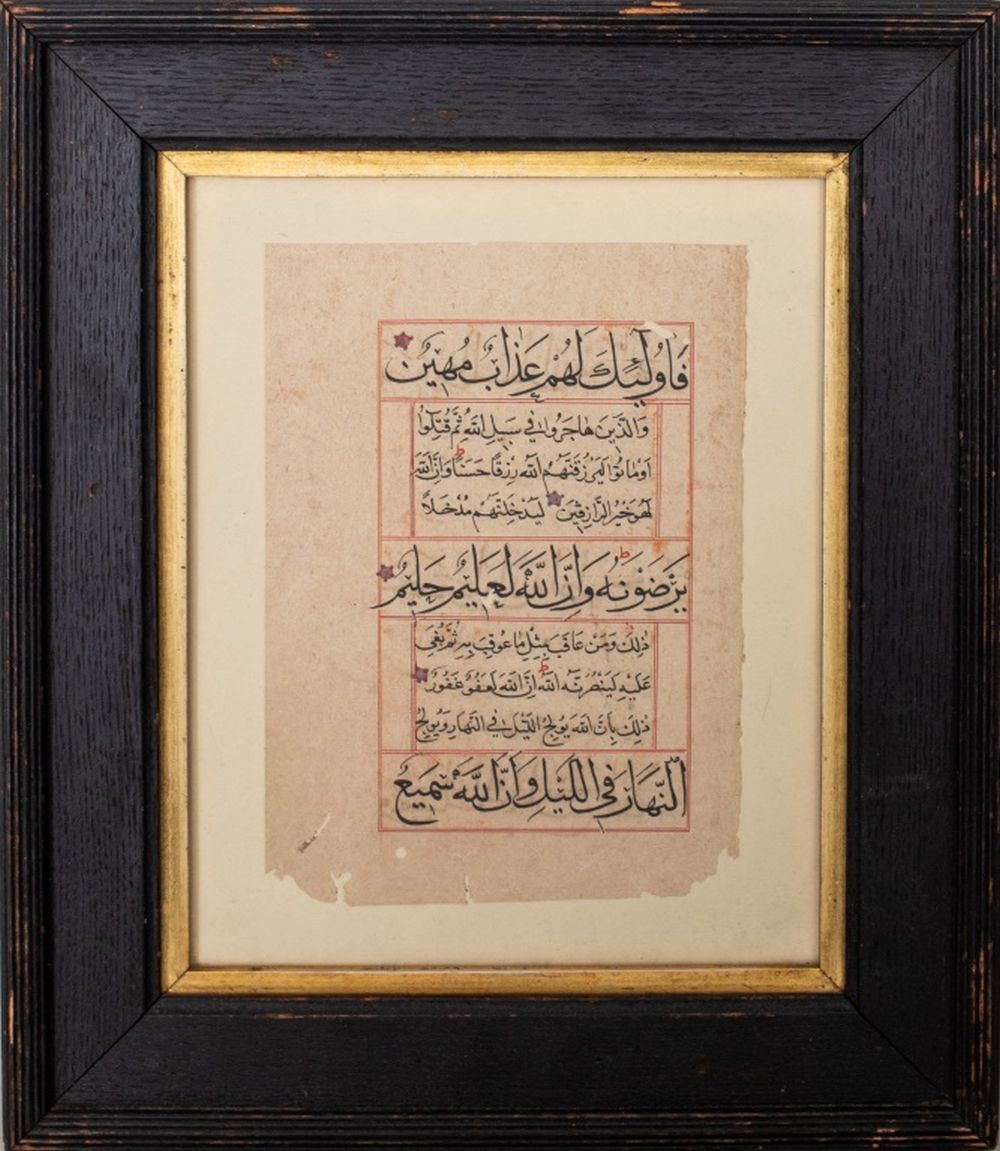 فَاُولٰٓئِكَ لَهُمْ عَذَابٌ مُهِينٌ
وَالَّذِينَ هَاجَرُوا فِي سَبِيلِ اللّٰهِ ثُمَّ قُتِلُوا
اَوْ مَاتُوا لَيَرْزُقَنَّهُمُ اللّٰهُ رِزْقًا حَسَنًا ط وَاِنَّ اللّٰهَ
لَهُوَ خَيْرُ الرَّازِقِينَ لَيُدْخِلَنَّهُمْ مُدْخَلاً
يَرْضَوْنَهُ ط وَاِنَّ اللّٰهَ لَعَلِيمٌ حَلِيمٌ
ذٰلِكَ وَمَنْ عَاقَبَ بِمِثْلِ مَا عُوقِبَ بِهِ ثُمَّ بُغِيَ
عَلَيْهِ لَيَنْصُرَنَّهُ اللّٰهُ ط اِنَّ اللّٰهَ لَعَفُوٌّ غَفُورٌ
ذٰلِكَ بِاَنَّ اللّٰهَ يُولِجُ الَّيْلَ فِي النَّهَارِ وَيُولِجُ
النَّهَارَ فِي اللَّيْلِ وَاَنَّ اللّٰهَ سَمِيعٌ